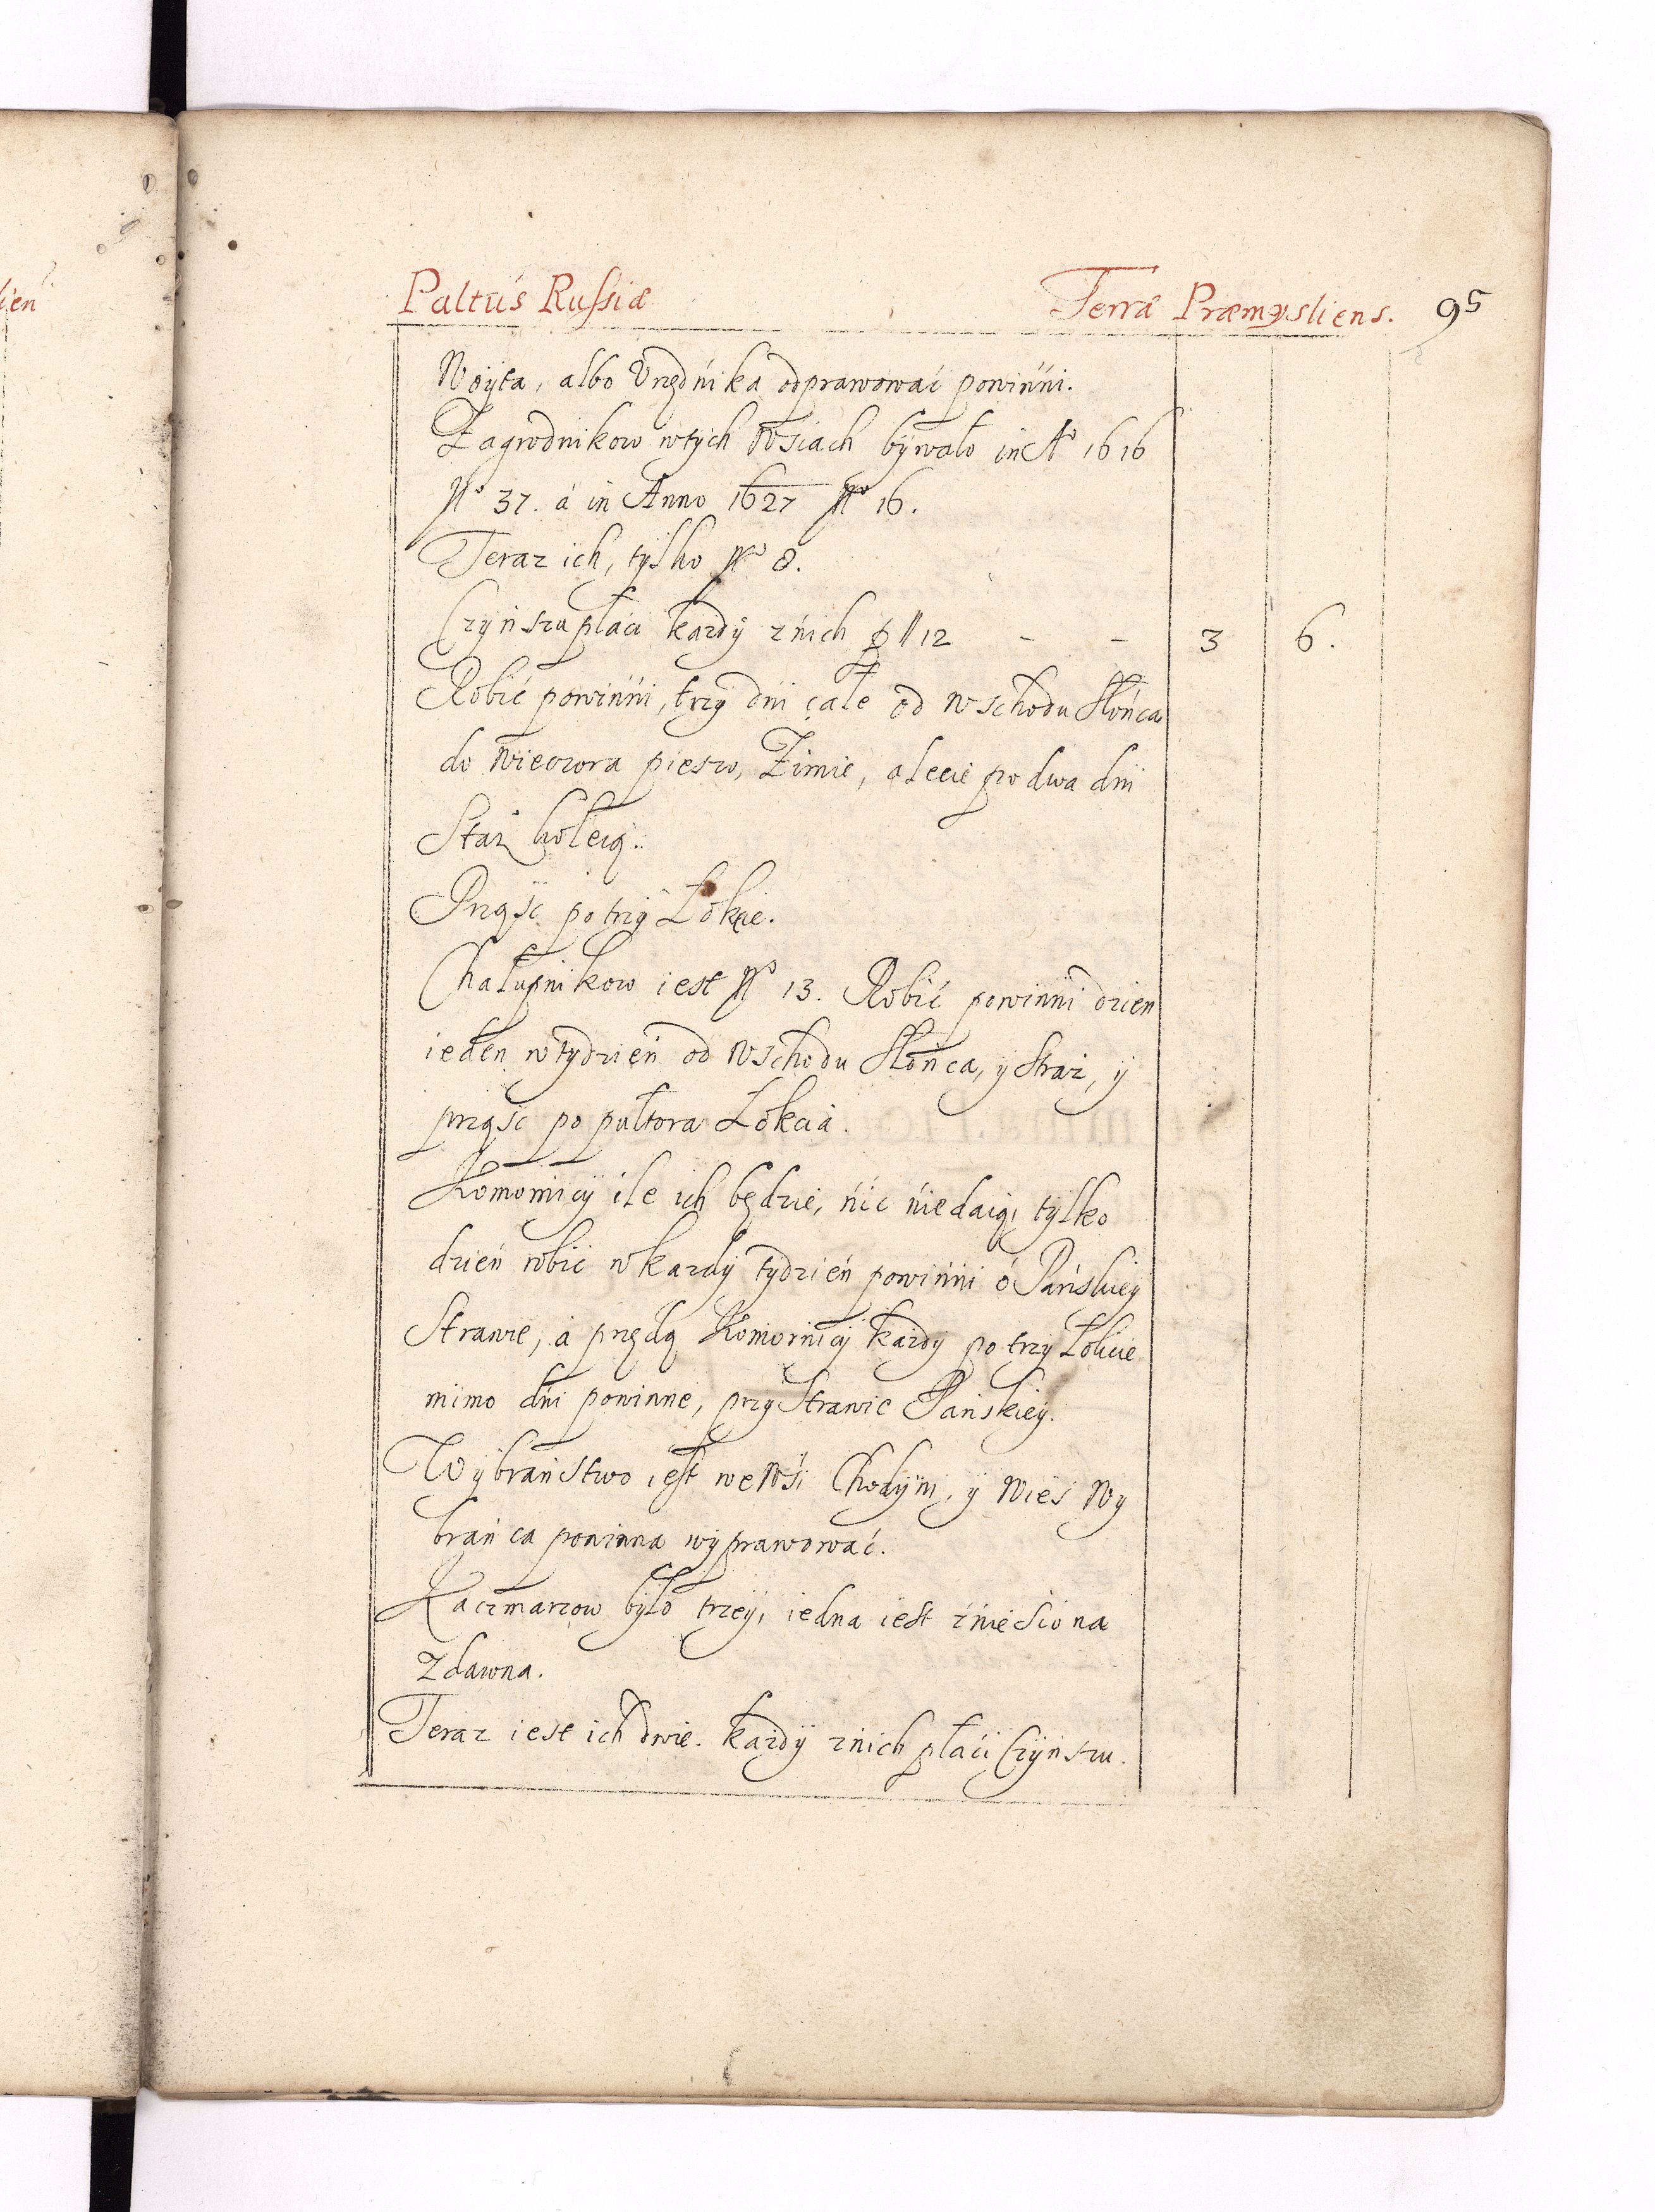 lien
Paltus Russiæ Terræ Præmysliens. 95
Woyta, albo Vrzędnika odprawować powinni.
Zagrodnikow wtych Wsiach bywało in Aº 1616
Nº 37. á in Anno 1627 Nº 16.
Teraz ich, tylko Nº 8.
Czynszu płaci każdy znich 12 - - 3 6.
Robić powinni, trzy dni całe od Wschodu Słońca
do Wieczora pieszo, Zimie, a Lecie po dwa dni
Straż koleią.
Prząść po trzy Łokcie.
Chałupnikow iest Nº 13. Robić powinni dzien
ieden wtydzień od Wschodu Słońca, y Straż, y
prząść po pułtora Łokcia.
Komornicy ile ich będzie, nic niedaią, tylko
dzień robić wkażdy tydzień powinni ó Pańskiey
Strawie, á przędą Komornicy każdy po trzy Łokcie
mimo dni powinne, przy Strawie Pańskiey.
Wybraństwo iest we Wsi Chodyni, y Wieś Wy
brańca powinna wyprawować.
Kaczmarzow było trzey, iedna iest zniesiona
zdawna.
Teraz iest ich dwie. każdy znich płaci Czynszu.